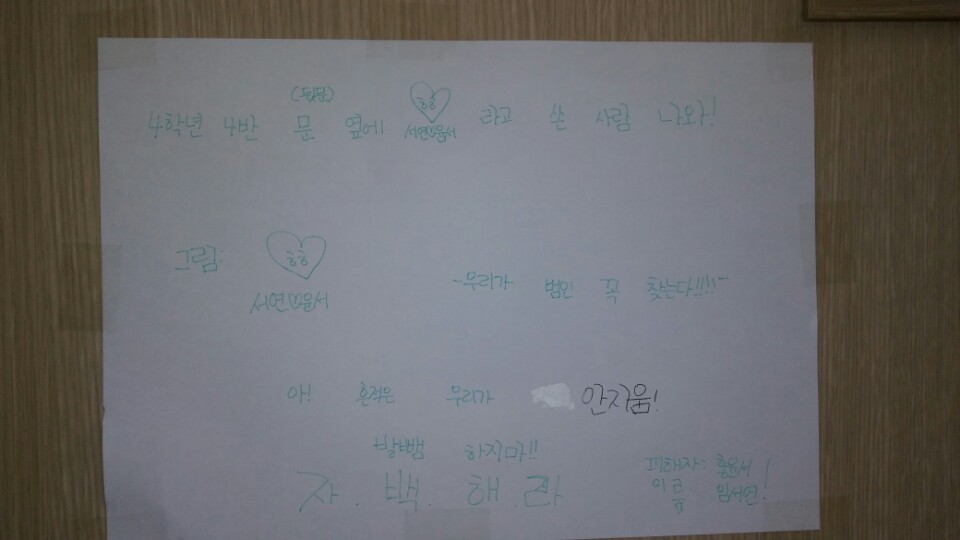 (뒷문)
4학년 4반 문 옆에 ♡흥흥 서연♡윤서 라고 쓴 사람 나와!
그림: ♡흥흥
-우리가 범인 꼭 찾는다!!!!-
서연♡윤서
아! 흔적은 우리가 안지움!
발뺌 하지마!!
자.백.해.라
피해자: 홍윤서
이름 임서연!